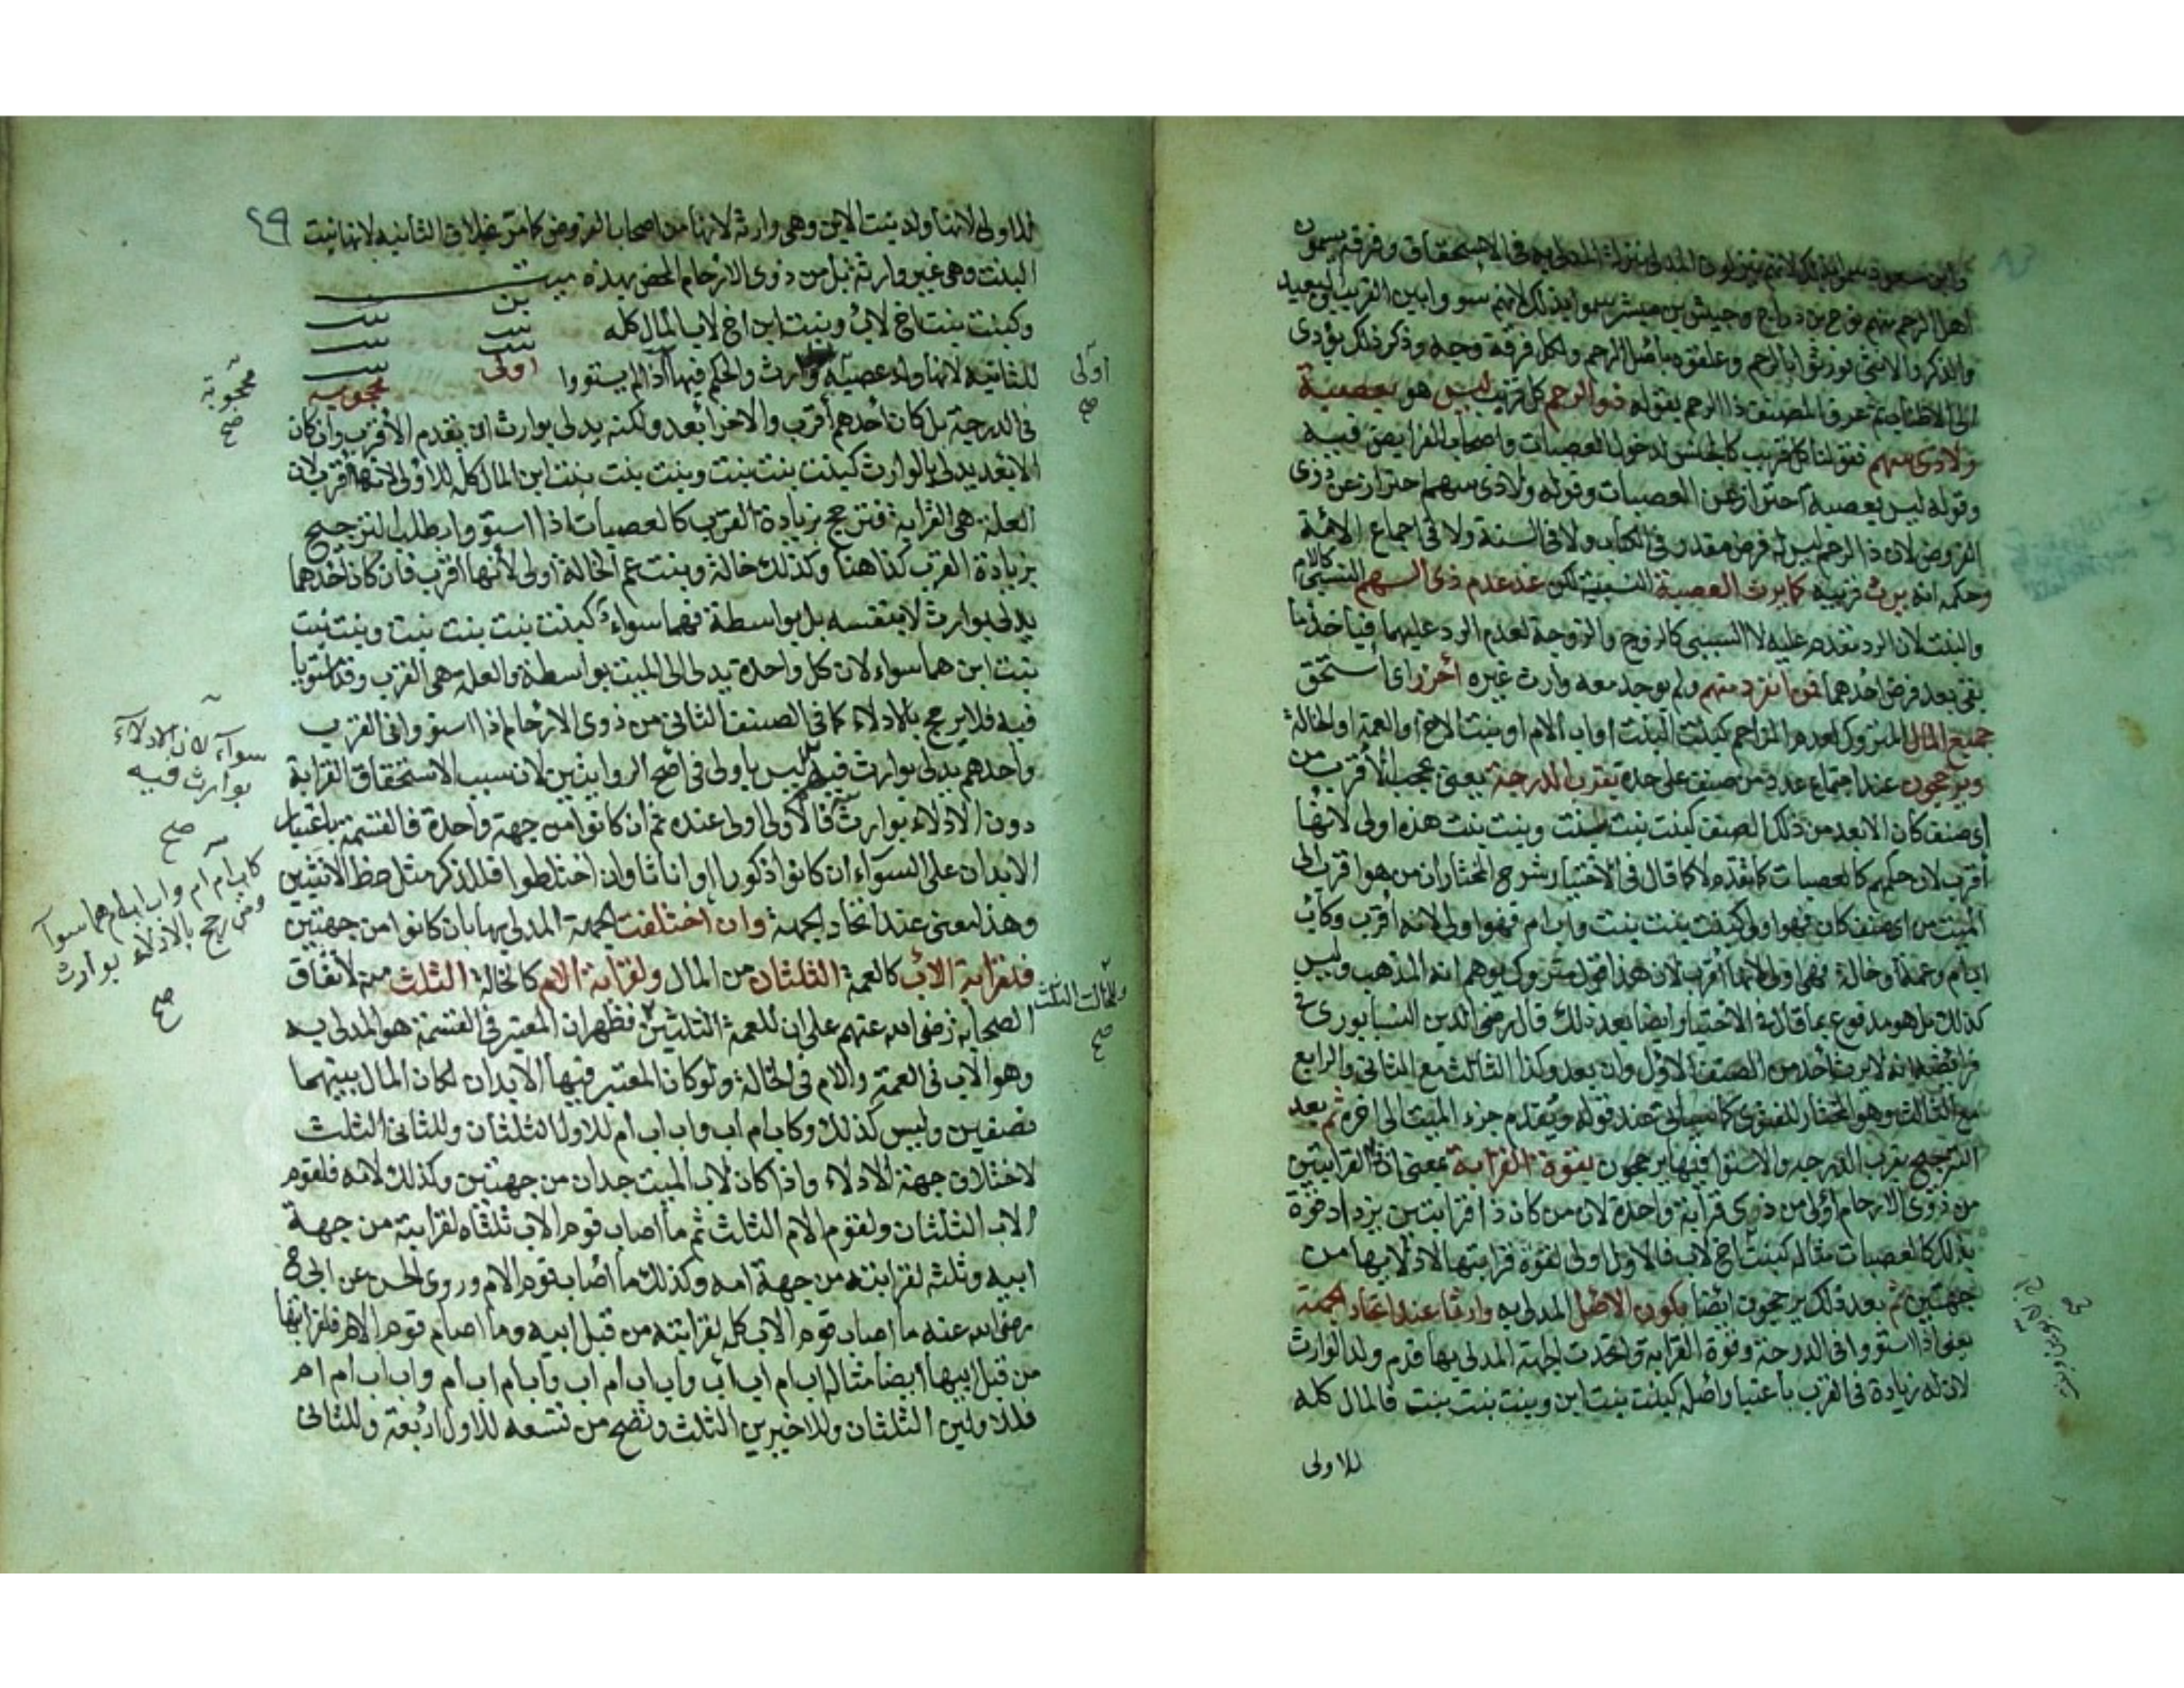 اهل الرحم منهم نوح بن دراج وحبيش بن مبشر سموا بذلك لانهم سووا بين القريب والبعيد
والذكر والانثى نورثوا بالرحم وعلقوه باصل الرحم ولكل فرقة وجه وذكر ذلك يؤدى
الى الاطناب ثم عرف المصنف ذا الرحم بقوله ذو الرحم كل قريب ليس هو بعصبة
ولا ذى سهم فقولنا كل قريب كالجنس لدخول العصبات واصحاب الفرايض فيه
وقوله ليس بعصبة احترازعن العصبات وقوله ولا ذى سهم احتراز عن ذوى
الفروض لان ذا الرحم ليس له فرض مقدر فى الكتاب ولا فى السنة ولا فى اجماع الامة
وحكمه انه يرث قريبه كما يرث العصبة النسبية لكن عند عدم ذى السهم النسبى كالام
والبنت لان الرد مقدم عليه لا السببى كالزوج والزوجة لعدم الرد عليهما فيأخذ ما
بقى بعد فرض احدهما فمن انفرد منهم ولم يوجد معه وارث غيره احرز اى استحق
جميع المال المتروك لعدم المزاحم كبنت البنت او اب الام او بنت الاخ او العمة او الخالة
ويرجحون عند اجتماع عدد من صنف على حدة بقرب الدرجة يعنى يحجب الأقرب من
اى صنف كان الابعد من ذلك الصنف كبنت بنت بنت وبنت بنت هذه اولى لانها
أقرب لان حكمهم كالعصبات كما تقدم لا كما قال فى الاختيار شرح المختار ان من هو اقرب الى
الميت من اى صنف كان فهو اولى كبنت بنت بنت واب ام فهو اولى لانه أقرب وكاب
اب ام وعمة او خالة فهى اولى لانها أقرب لان هذا قول متروك يوهم انه المذهب وليس
كذلك بل هو مدفوع بما قال فى الاختيار ايضا بعد ذلك قال رضى الدين النيسابورى فى
فرائضه انه لا يرث احد من الصنف الاول وان بعد وكذا الثالث مع الثانى والرابع
مع الثالث وهو المختار للفتوى كما سيأتى عند قوله ويقدم جزء الميت الى اخره ثم بعد
الترجيح بقرب الدرجة والاستوا فيها يرجحون بقوة القرابة بمعنى ان ذا القرابتين
من ذوى الارحام أولى من ذوى قرابة واحدة لان من كان ذا قرابتين يزداد قوة
بذلك كالعصبات مثاله كبنت اخ لاب فالاولى اولى لقوة قرابتها لادلابها من
جهتين ثم بعد ذلك يرجحون ايضا بكون الاصل المدلى به وارثا عند اتحاد الجهة
يعنى اذا استووا فى الدرجة وقوة القرابة واتحدت الجهة المدلى بها قدم ولد الوارث
لان له زيادة فى القرب باعتبار اصله كبنت بنت ابن وبنت بنت بنت فالمال كله
للاولى
٢٩
للاولى لانها ولد بنت الابن وهى وارثة لانها من اصحاب الفروض كما مر بخلاف الثانية لانها بنت
البنت وهى غير وارثة بل من ذوى الارحام المحض بهذه ميت
بن
بنت بنت
بنت بنت
بنت
اولى محجوبة
وكبنت بنت اخ لاب وبنت ابن اخ لاب المال كله
للثانية لانها ولد عصبة وارث والحكم فيها اذا لم يستووا
اولى
صح
محجوبة
صح
فى الدرجة بل كان أحدهم أقرب والاخر أبعد ولكنه يدلى بوارث ان يقدم الأقرب وان كان
الابعد يدلى بالوارث كبنت بنت بنت وبنت بنت بنت ابن المال كله للاولى لانها أقرب لان
العلة هى القرابة فترجح بزيادة القرب كالعصبات اذا استووا وطلب الترجيح
بزيادة القرب كذا هنا وكذلك خالة وبنت عم الخالة اولى لأنها اقرب فان كان احدهما
يدلى بوارث لا بنفسه بل بواسطة فهما سواء كبنت بنت بنت بنت وبنت بنت
بنت ابن هما سواء لان كل واحدة يدلى الى الميت بواسطة والعلة هى القرب وقد استويا
فيه فلا يرجح بالادلاء كما فى الصنف الثانى من ذوى الارحام اذا استووا فى القرب
واحدهم يدلى بوارث فيه ليس باولى فى اصح الروايتين لان سبب الاستحقاق القرابة
دون الادلاء بوارث فالاولى اولى عنده ثم ان كانوا من جهة واحدة فالقسمة باعتبار
الابدان على السواء ان كانوا ذكورا او اناثا وان اختلطوا فللذكر مثل حظ الانثيين
وهذا معنى عند اتحاد الجهة وان اختلفت الجهة المدلى بها بان كانوا من جهتين
فلقرابة الاب كالعمة الثلثان من المال ولقرابة الام كالخالة الثلث منه لاتفاق
الصحابة رضى الله عنهم على ان للعمة الثلثين فظهر ان المعتبر فى القسمة هو المدلى به
وهو الاب فى العمة والام فى الخالة ولو كان المعتبر فيها الابدان لكان المال بينهما
نصفين وليس كذلك وكاب ام اب واب اب ام للاول الثلثان وللثانى الثلث
لاختلاف جهة الادلاء واذا كان لاب الميت جدان من جهتين وكذلك لامه فلقوم
الاب الثلثان ولقوم الام الثلث ثم ما اصاب قوم الاب ثلثاه لقرابته من جهة
ابيه وثلثه لقرابته من جهة امه وكذلك ما اصاب قوم الام وروى الحسن عن ابى ح
رضى الله عنه ما اصاب قوم الاب كله لقرابته من قبل ابيه وما اصاب قوم الام فلقرابتها
من قبل ابيها أيضا مثاله اب ام اب اب واب اب ام اب واب ام اب ام واب اب ام ام
فللاولين الثلثان وللاخيرين الثلث وتصح من تسعه للاول اربعة وللثانى
سواء لان الادلاء
بوارث فيه
صح
كاب ام ام واب اب ام هما سواء
ومن رجح بالادلاء بوارث
صح
وللخالة الثلث
صح